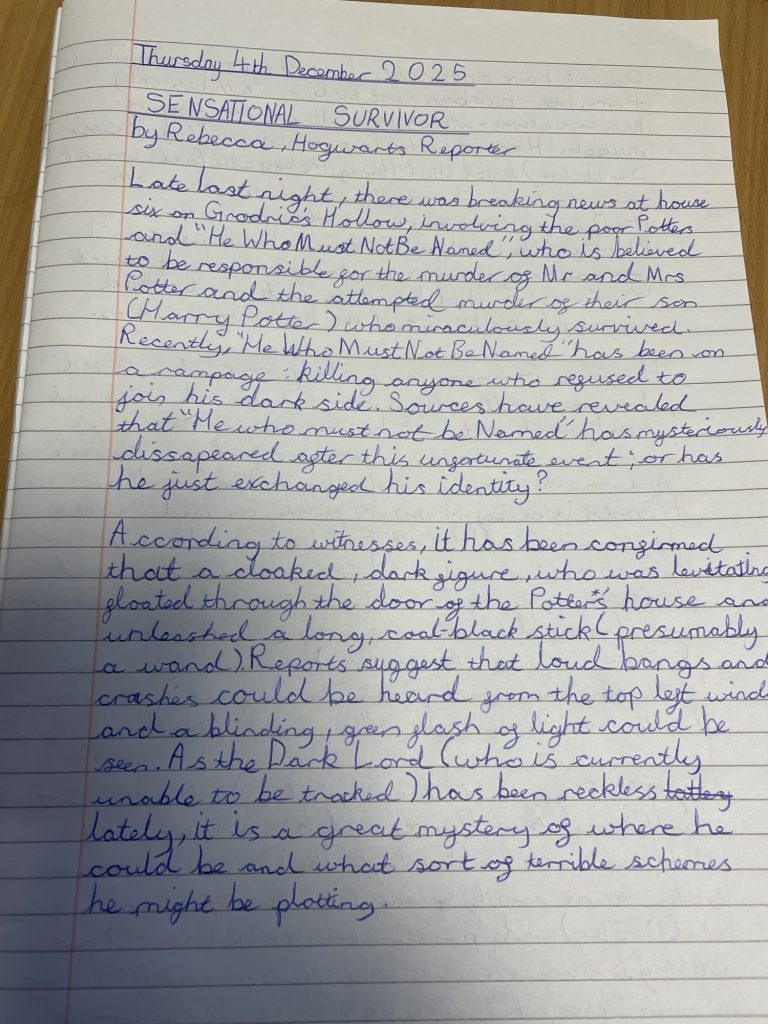 Thursday 4th December 2025
SENSATIONAL SURVIVOR
by Rebecca, Hogwarts Reporter
Late last night, there was breaking news at house
six on Grodrics Hollow, involving the poor Potters
and "He Who Must Not Be Named", who is believed
to be responsible for the murder of Mr and Mrs
Potter and the attempted murder of their son
(Harry Potter) who miraculously survived.
Recently, "He Who Must Not Be Named" has been on
a rampage: killing anyone who refused to
join his dark side. Sources have revealed
that "He who must not be Named" has mysteriously
dissapeared after this unfortunate event; or has
he just exchanged his identity?
According to witnesses, it has been confirmed
that a cloaked, dark figure, who was levitating
floated through the door of the Potter's house and
unleashed a long, coal-black stick (presumably
a wand). Reports suggest that loud bangs and
crashes could be heard from the top left wind
and a blinding, green flash of light could be
seen. As the Dark Lord (who is currently
unable to be tracked) has been reckless
lately, it is a great mystery of where he
could be and what sort of terrible schemes
he might be plotting.